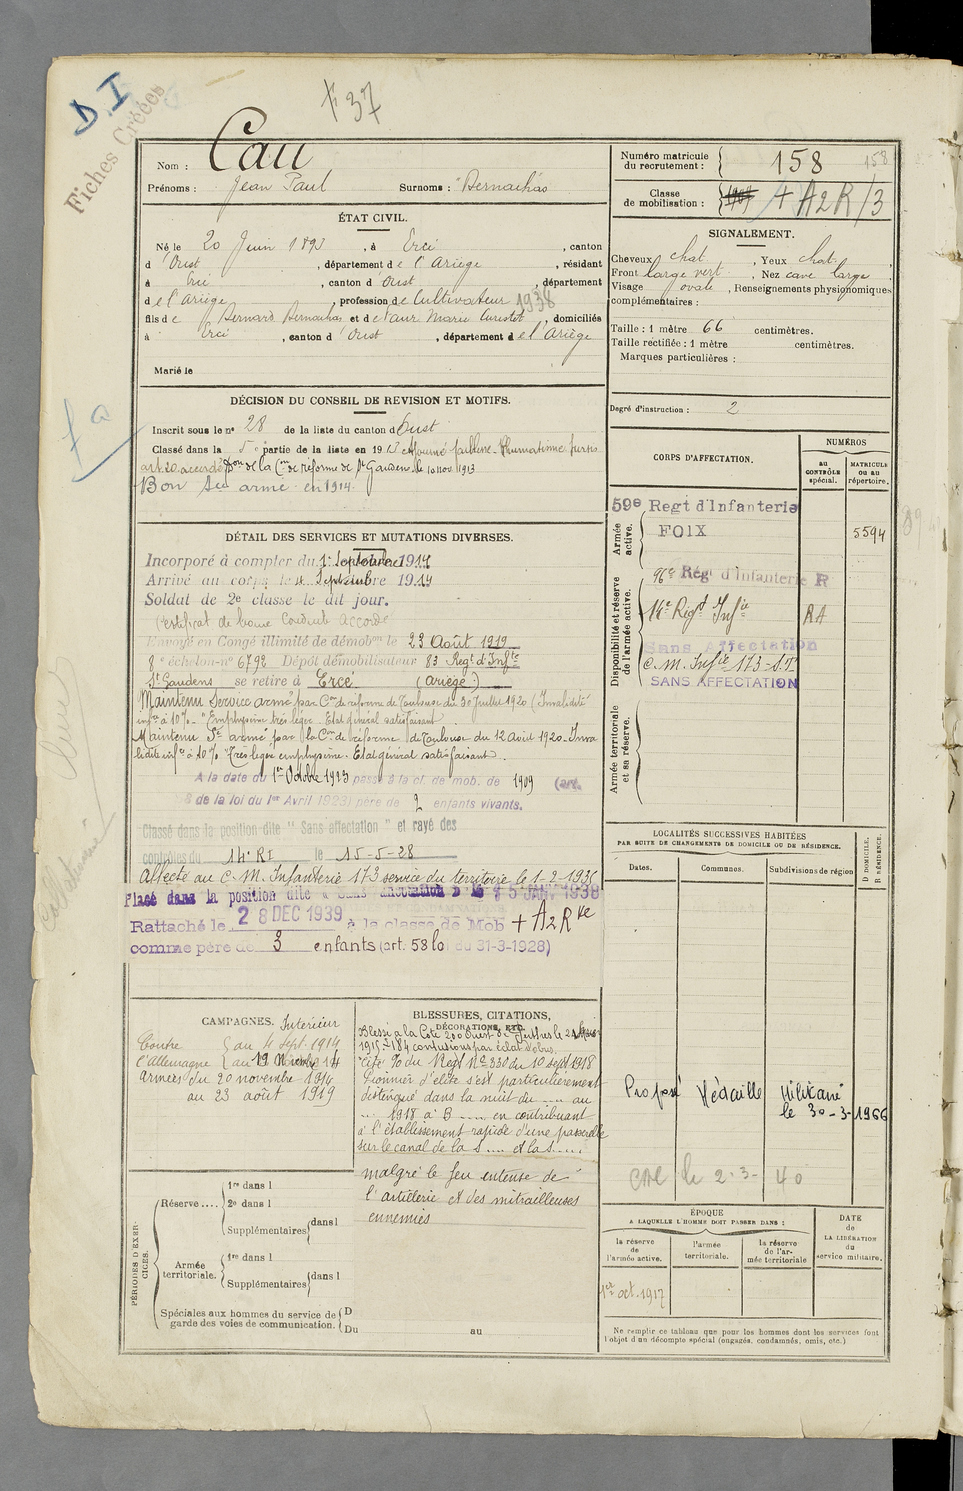 D. I
Fiches Créées
F 37
Nom : Cau
Prénoms : Jean Paul Surnoms : Bernachas
Numéro matricule du recrutement : 158
158
Classe de mobilisation : 1909 + A2R/3
ÉTAT CIVIL.
Né le 20 Juin 1893, à Ercé, canton
d'Oust, département de l'Ariège, résidant
à Ercé, canton d'Oust, département
de l'Ariège, profession de Cultivateur 1938
fils de Bernard Bernachas et de Marie, domiciliés
à Ercé, canton d'Oust, département de l'Ariège
Marié le
SIGNALEMENT.
Cheveux chat., Yeux chat.
Front large vert., Nez cave large
Visage ovale, Renseignements physionomiques
complémentaires :
Taille : 1 mètre 66 centimètres.
Taille rectifiée : 1 mètre centimètres.
Marques particulières :
Degré d'instruction : 2
DÉCISION DU CONSEIL DE REVISION ET MOTIFS.
Inscrit sous le n° 28 de la liste du canton d'Oust
Classé dans la 5e partie de la liste en 1913 Ajourné faiblesse
art 20 accordé Don de la Con de réforme de St Gaudens le 10 nov 1913
Bon Sce armé en 1914
DÉTAIL DES SERVICES ET MUTATIONS DIVERSES.
Incorporé à compter du 1er Septembre 1914
Arrivé au corps le 4 Septembre 1914
Soldat de 2e classe le dit jour.
Certificat de bonne conduite Accordé
Envoyé en Congé illimité de démobon le 23 Août 1919
8e échelon n° 6792 Dépôt démobilisateur 83 Regt d'Infie
St Gaudens se retire à Ercé (Ariège)
Maintenu Service armé par Con de réforme de Toulouse du 30 Juillet 1920 (Invalidité
infre à 10% "Emphysème très léger. Etat général satisfaisant
Maintenu Sce armé par la Con de réforme de Toulouse du 12 Août 1920. Inva
lidité infre à 10%. Très léger emphysème. Etat général satisfaisant.
A la date du 1er Octobre 1923 passe à la cl. de mob. de 1909 (art.
58 de la loi du 1er Avril 1923) père de 2 enfants vivants.
Classé dans la position dite "Sans affectation" et rayé des
contrôles du 14e RI le 15-5-28
Affecté au C. M. Infanterie 173 service du territoire le 1-2-1935
Placé dans la position dite « Sans affectation » le 15 JAN. 1938
Rattaché le 28 DEC 1939 à la classe de Mob + A2Rte
comme père de 3 enfants (art. 58 loi du 31-3-1928)
CORPS D'AFFECTATION.
NUMÉROS
au CONTRÔLE spécial.
MATRICULE ou au répertoire.
Armée active.
59e Regt d'Infanterie
FOIX
5594
Disponibilité et réserve de l'armée active.
96e Régt d'Infanterie R
14e Régt Infie RA
Sans Affectation
C. M. Infie 173 - S.T.
SANS AFFECTATION
Armée territoriale et sa réserve.
LOCALITÉS SUCCESSIVES HABITÉES
PAR SUITE DE CHANGEMENTS DE DOMICILE OU DE RÉSIDENCE.
Dates.
Communes.
Subdivisions de région
D DOMICILE. R RÉSIDENCE.
Proposé Médaille Militaire
le 30-3-1966
le 2-3-40
CAMPAGNES.
Intérieur
Contre l'Allemagne
au 4 sept. 1914
au 19 Novembre 14
armées du 20 novembre 1914
au 23 août 1919
BLESSURES, CITATIONS, DÉCORATIONS, ETC.
Blessé à la Cote 200 Ouest de Perthes le
1915 contusions par éclat d'obus.
Cité O/ du Regt No 330 du 10 sept 1918
Pionnier d'élite s'est particulièrement
distingué dans la nuit du .... au
... 1918 à B ..... en contribuant
à l'établissement rapide d'une passerelle
sur le canal de la S .... et la S .....
malgré le feu intense de
l'artillerie et des mitrailleuses
ennemies
PÉRIODES D'EXERCICES.
Réserve ....
1re dans l
2e dans l
Supplémentaires dans l
Armée territoriale.
1re dans l
Supplémentaires dans l
Spéciales aux hommes du service de garde des voies de communication.
D
Du au
ÉPOQUE
A LAQUELLE L'HOMME DOIT PASSER DANS :
la réserve de l'armée active.
l'armée territoriale.
la réserve de l'armée territoriale
DATE de LA LIBÉRATION du service militaire.
1er oct. 1917
Ne remplir ce tableau que pour les hommes dont les services font
l'objet d'un décompte spécial (engagés, condamnés, omis, etc.)